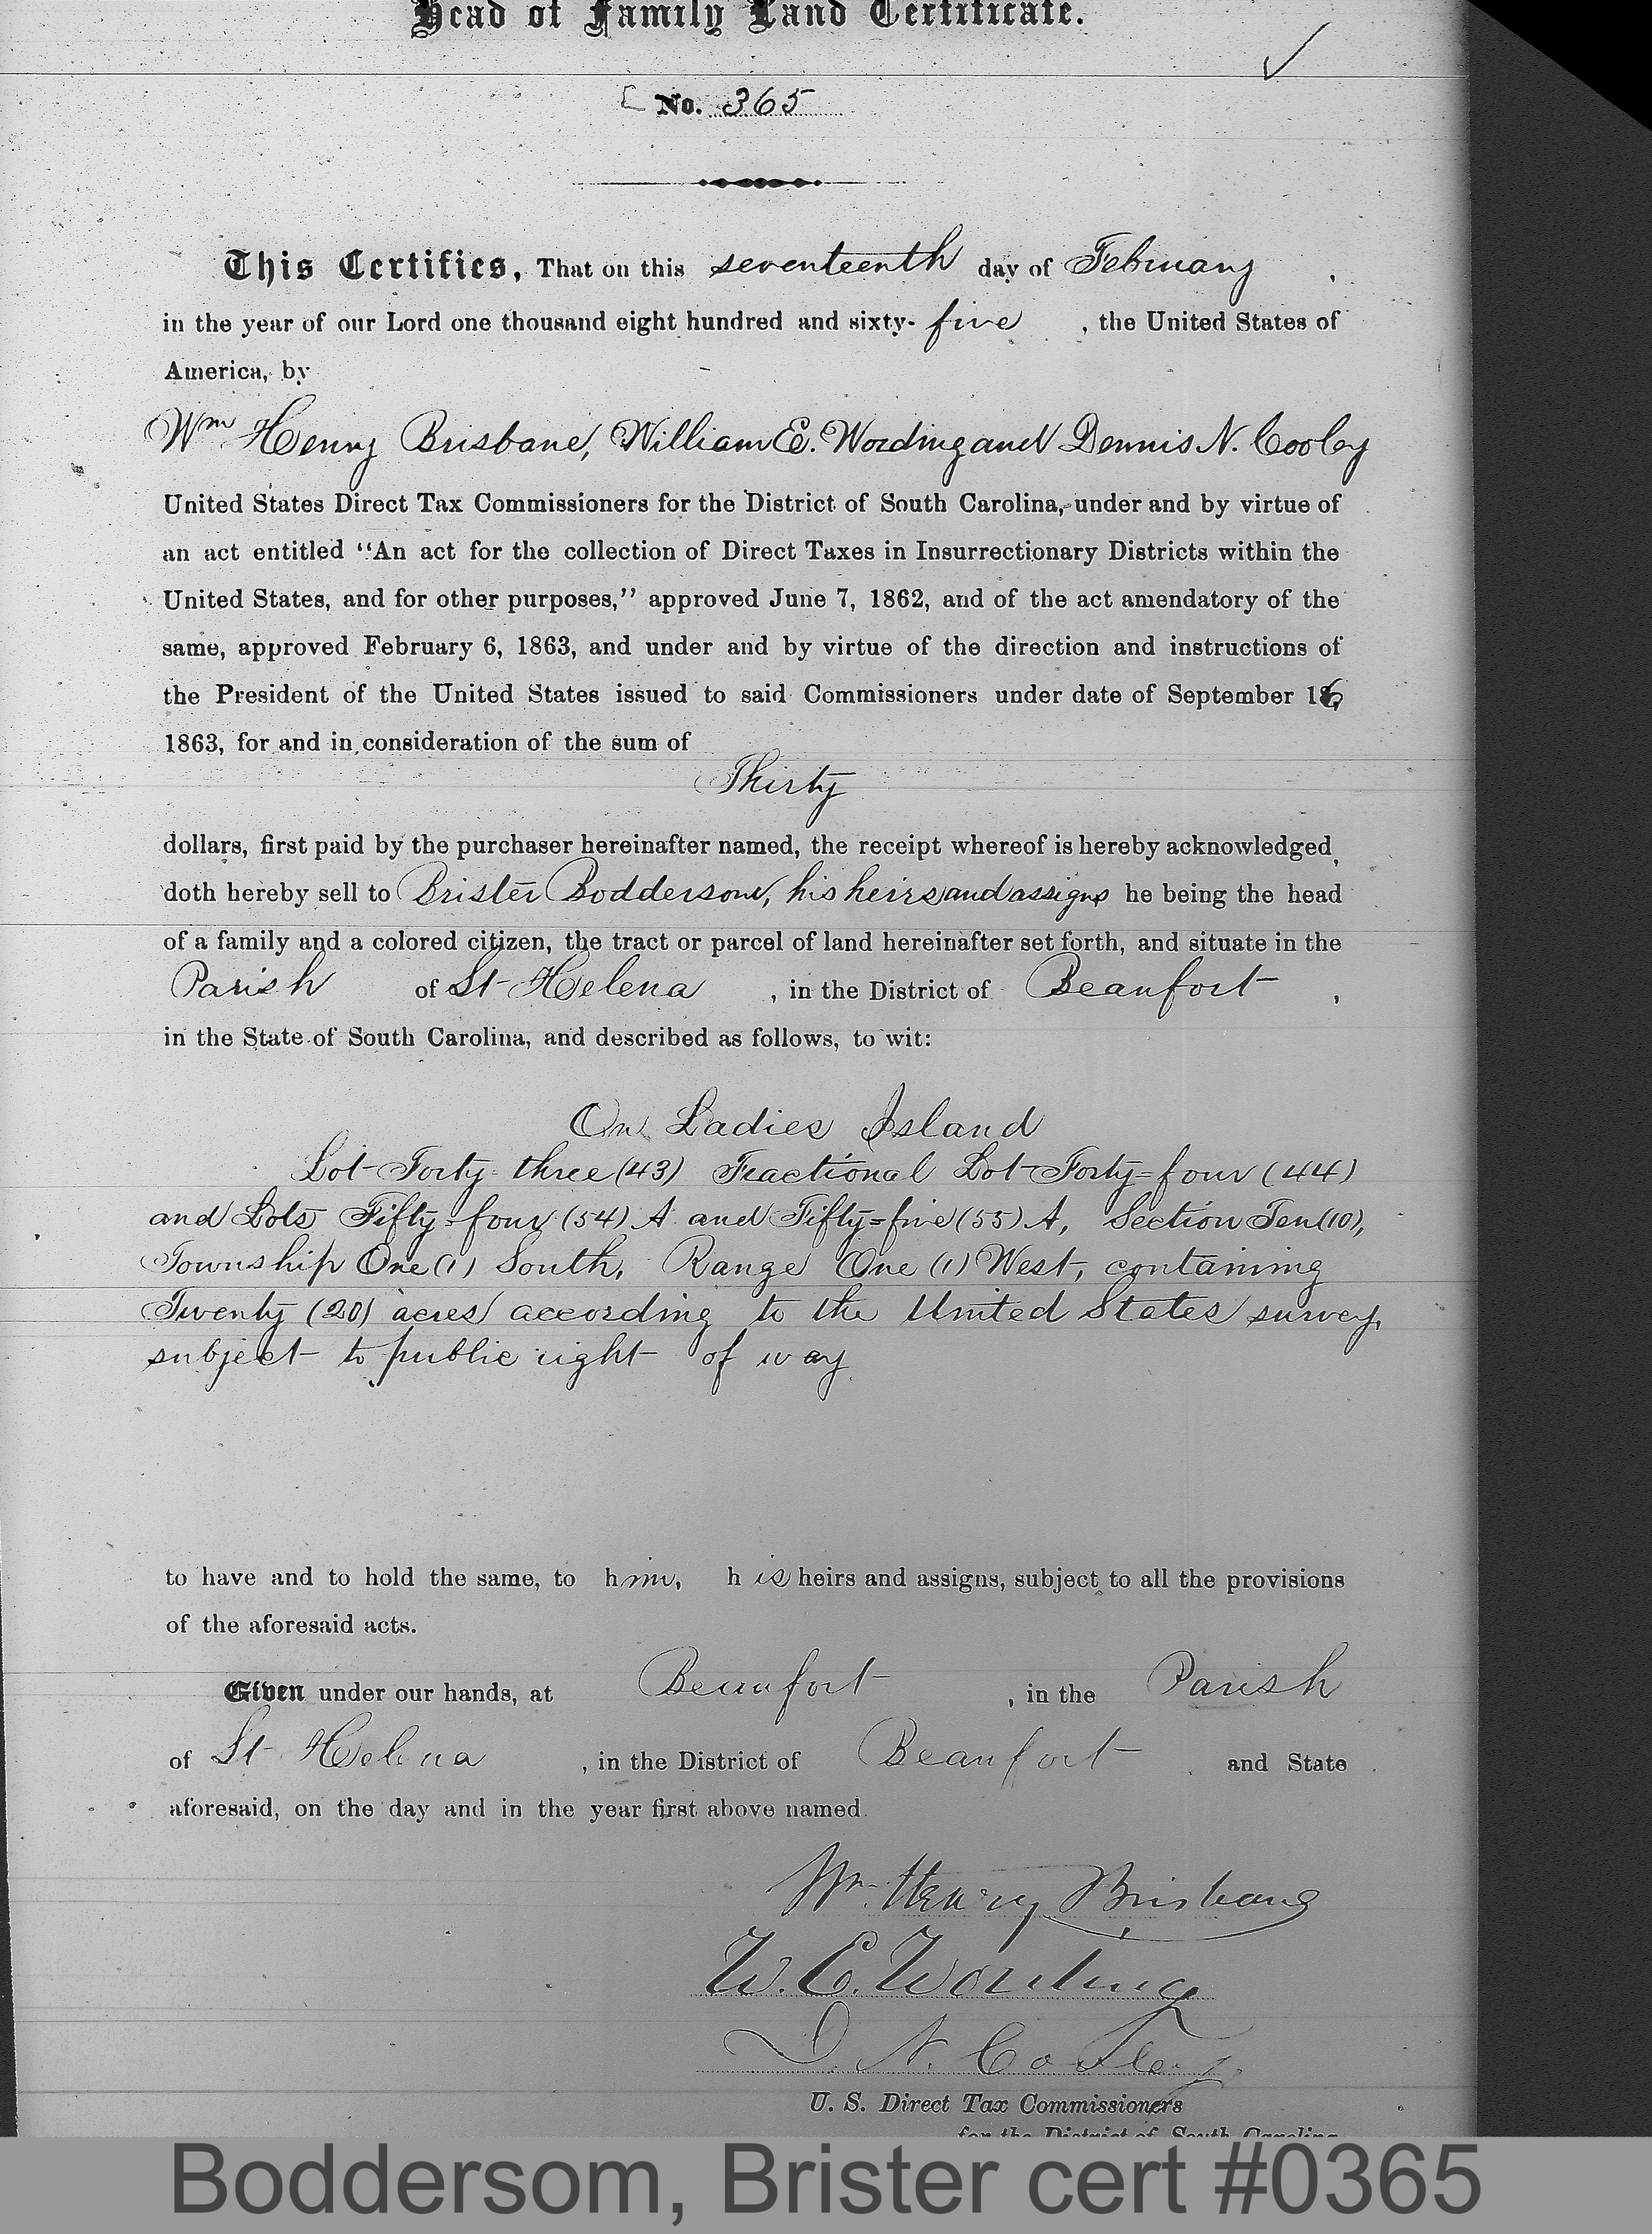 Head of Family Land Certificate.
No. 365
This Certifies, That on this seventeenth day of February ,
in the year of our Lord one thousand eight hundred and sixty- five , the United States of
America, by
Wm Henry Brisbane, William E. Wording and Dennis N. Cooley
United States Direct Tax Commissioners for the District of South Carolina, under and by virtue of
an act entitled "An act for the collection of Direct Taxes in Insurrectionary Districts within the
United States, and for other purposes," approved June 7, 1862, and of the act amendatory of the
same, approved February 6, 1863, and under and by virtue of the direction and instructions of
the President of the United States issued to said Commissioners under date of September 16,
1863, for and in consideration of the sum of
Thirty
dollars, first paid by the purchaser hereinafter named, the receipt whereof is hereby acknowledged,
doth hereby sell to Brister Boddersom, his heirs and assigns he being the head
of a family and a colored citizen, the tract or parcel of land hereinafter set forth, and situate in the
Parish of St Helena , in the District of Beaufort ,
in the State of South Carolina, and described as follows, to wit:
On Ladies Island
Lot Forty-three (43) Fractional Lot Forty=four (44)
and Lots Fifty=four (54) A and Fifty=five (55) A, Section Ten (10),
Township One (1) South, Range One (1) West, containing
Twenty (20) acres according to the United States survey,
subject to public right of way.
to have and to hold the same, to him, his heirs and assigns, subject to all the provisions
of the aforesaid acts.
Given under our hands, at Beaufort , in the Parish
of St Helena , in the District of Beaufort and State
aforesaid, on the day and in the year first above named.
Wm. Henry Brisbane
W. E. Wording
D. N. Cooley
U. S. Direct Tax Commissioners
for the District of South Carolina
Boddersom, Brister cert #0365